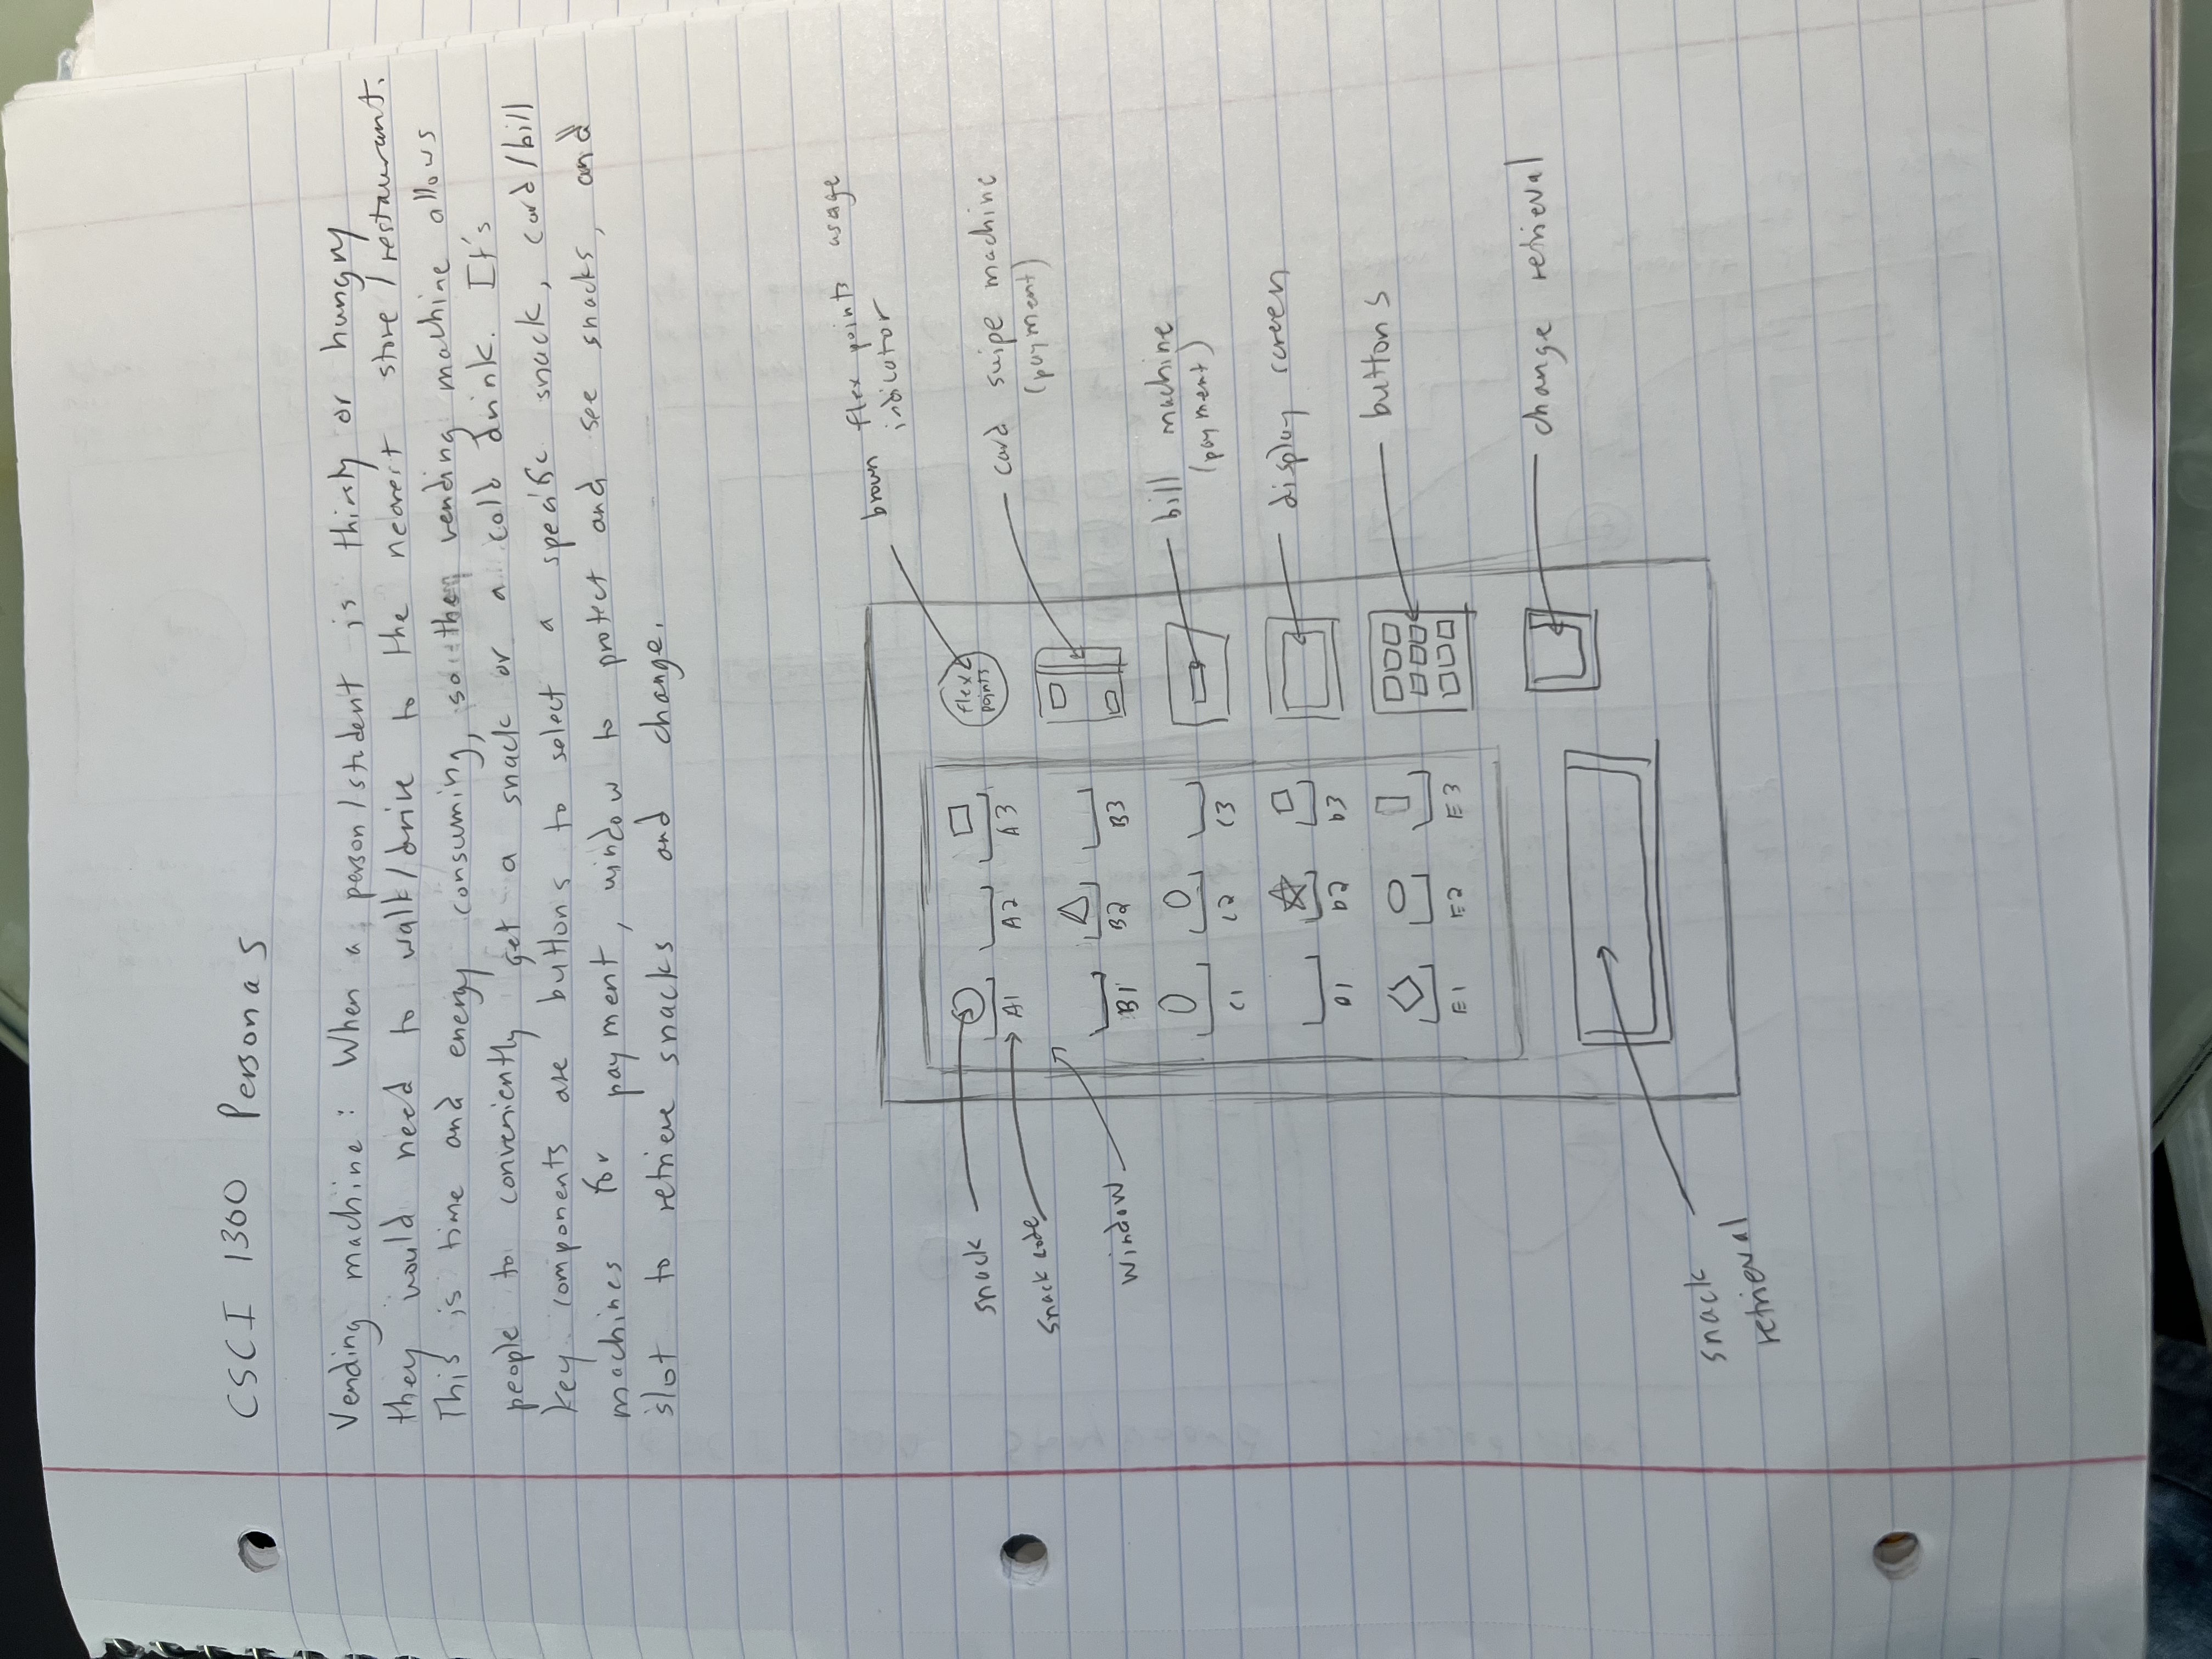 CSCI 1300 Personas
Vending machine: When a person/student is thirsty or hungry
they would need to walk/drive to the nearest store/restaurant.
This is time and energy consuming, so the vending machine allows
people to conveniently get a snack or a cold drink. It's
key components are buttons to select a specific snack, card/bill
machines for payment, window to protect and see snacks, and
slot to retrieve snacks and change.
brown flex points usage
indicator
snack
flex
points
card swipe machine
(payment)
A1 A2 A3
snack code
window
B1 B2 B3
bill machine
(payment)
C1 C2 C3
display screen
D1 D2 D3
buttons
E1 E2 E3
change retrieval
snack
retrieval